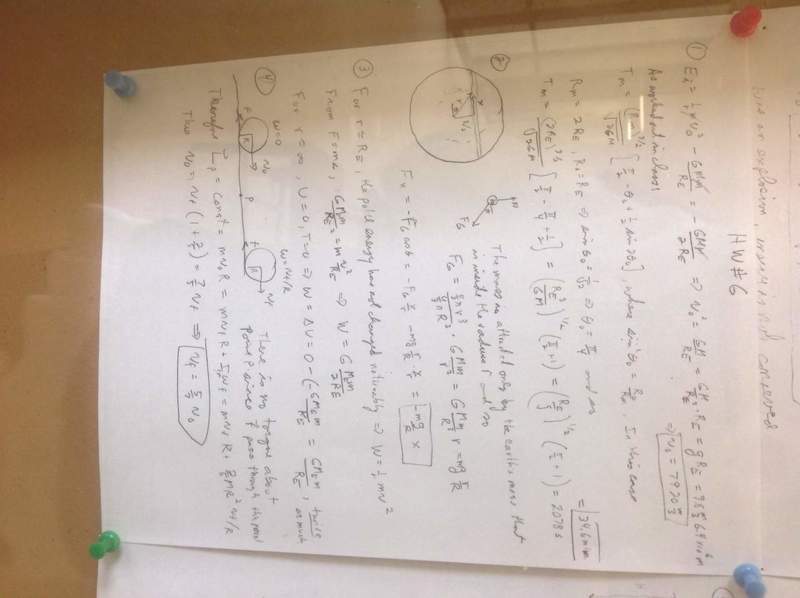 like an explosion, energy is not conserved
HW#6
① Ei = ½ m v0² - GMm/RE = - GMm/2RE ⇒ v0² = GM/RE = GM/RE² · RE = g RE = 9.8 m/s² 6.4 × 10⁶ m
⇒ v0 = 7920 m/s
As worked out in class
Tm = (Rm)^3/2/√2GM [π/2 - θ0 + ½ sin 2θ0], where sin²θ0 = R0/Rm. In this case
Rm = 2RE, R0 = RE ⇒ sin θ0 = 1/√2 ⇒ θ0 = π/4 and so
Tm = (2RE)^3/2/√2GM [π/2 - π/4 + ½] = (RE³/GM)^1/2 (π/2 + 1) = (RE/g)^1/2 (π/2 + 1) = 2078 s
= 34.6 min
② The mass m attracted only by the earth's mass that
is inside the radius r and so
FG = 4/3 π r³ / 4/3 π R³ · GMm/r² = GMm/R³ r = mg r/R
Fx = -FG cos θ = -FG x/r = -mg r/R · x/r = -mg/R x
③ For r ≅ RE, the pot. energy has not changed noticeably ⇒ W = ½ mv²
From F = ma, GMEm/RE² = m v²/RE ⇒ W = G MEm/2RE
For r = ∞, U = 0, T = 0 ⇒ W = ΔU = 0 - (-GMEm/RE) = GMEm/RE, twice
as much
④ There is no torque about
point P since f pass through the point
f R v0 P f R vf
ω=0 ω=vf/R
Therefore Lp = const = m v0 R = m vf R + I ωf = m vf R + 2/5 m R² vf/R
Thus v0 = vf (1 + 2/5) = 7/5 vf ⇒ vf = 5/7 v0